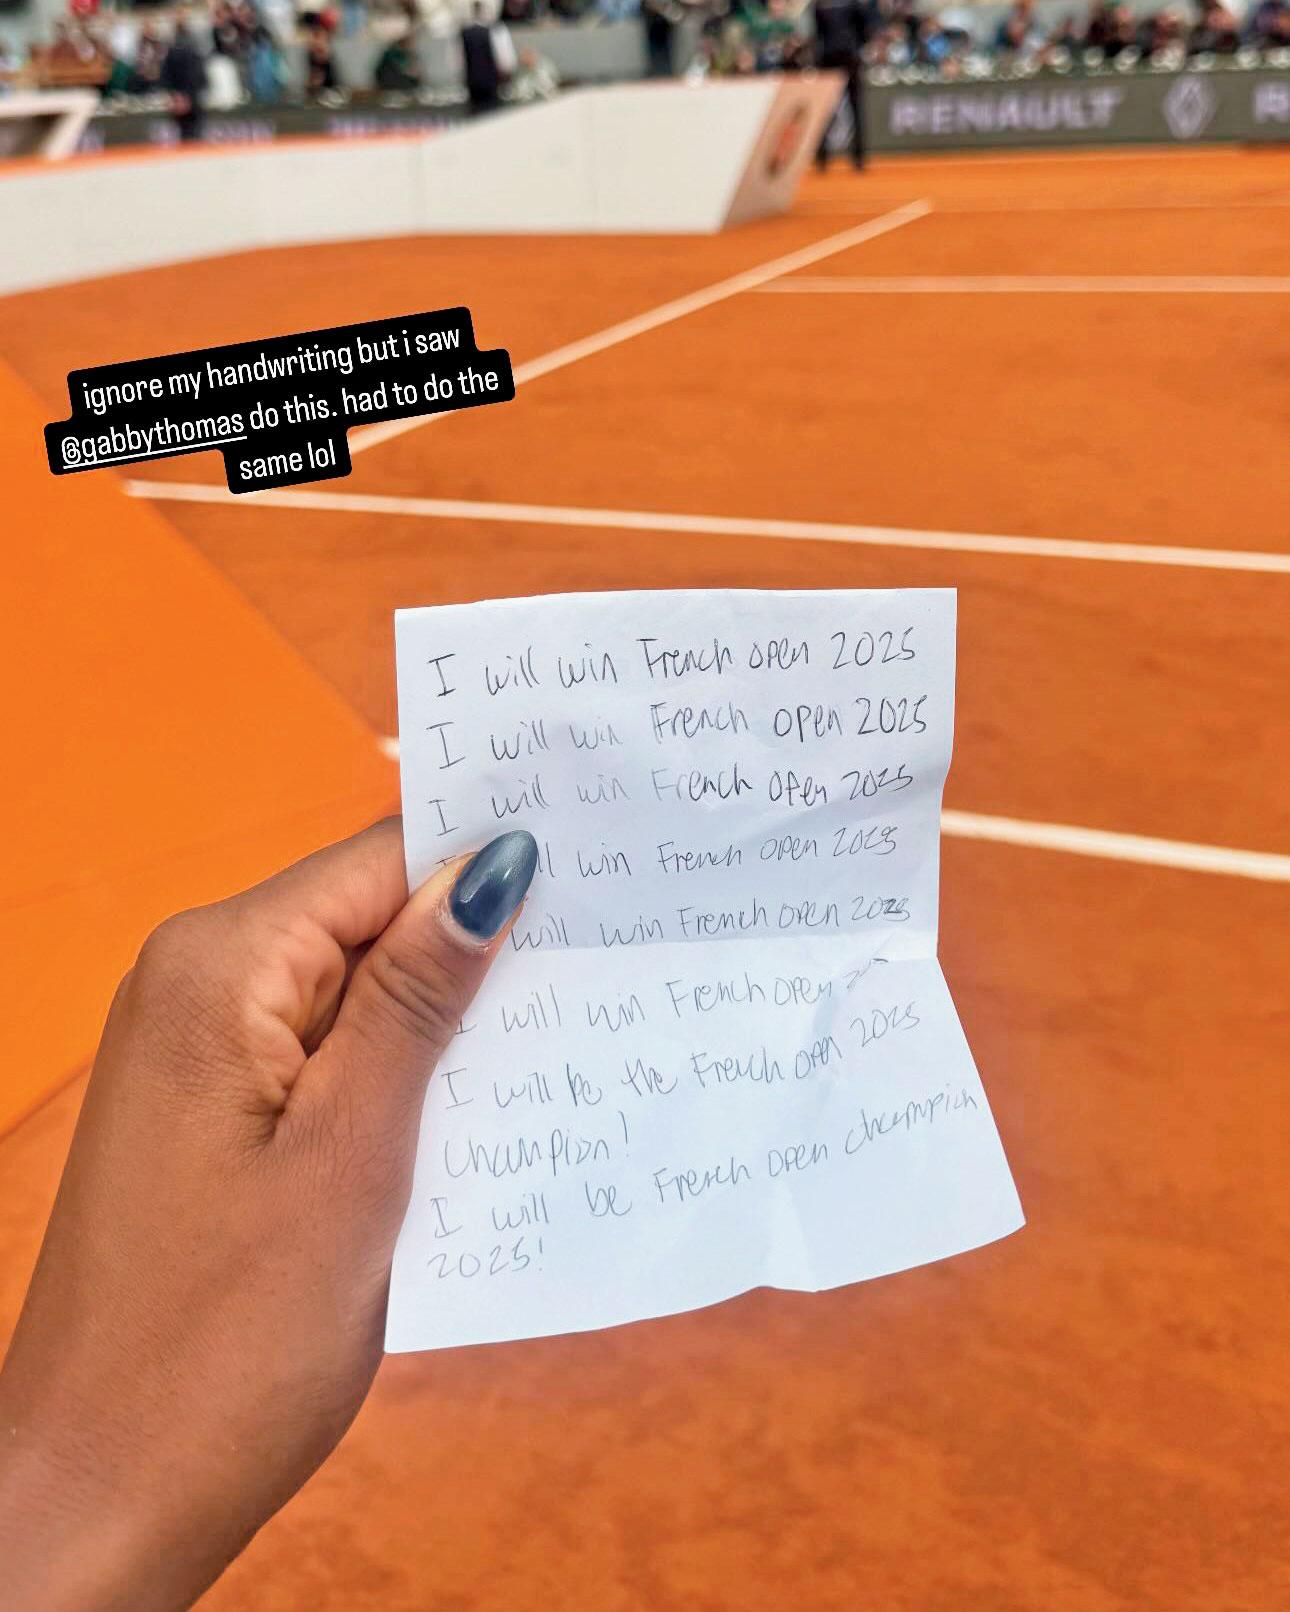 RENAULT
ignore my handwriting but i saw
@gabbythomas do this. had to do the
same lol
I will win French open 2025
I will win French open 2025
I will win French open 2025
ll win French open 2025
will win French open 2025
I will win French open
I will be the French open 2025
Champion!
I will be French open champion
2025!